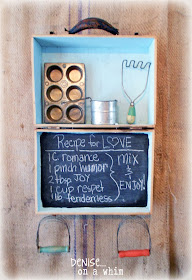 Recipe for LOVE
1 C romance
1 pinch humor
2 tbsp JOY
1 cup respet
1 lb tendenless
mix
&
ENJOY!
DENISE...
on a whim